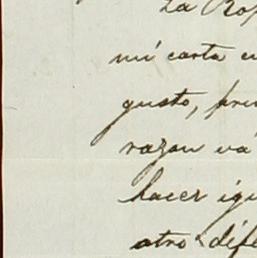 La Rop
mi carta en
gusto, pru
razon vá
hacer igu
otro dife